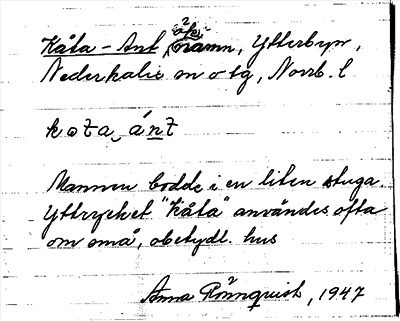 Kåta-Ant, öknamn, Ytterbyn,
Nederkalix sn o tg, Norrb. l
kota ánt
Mannen bodde i en liten stuga.
Yttrycket "Kåta" användes ofta
om små, obetydl. hus
Anna Rönnquist, 1947